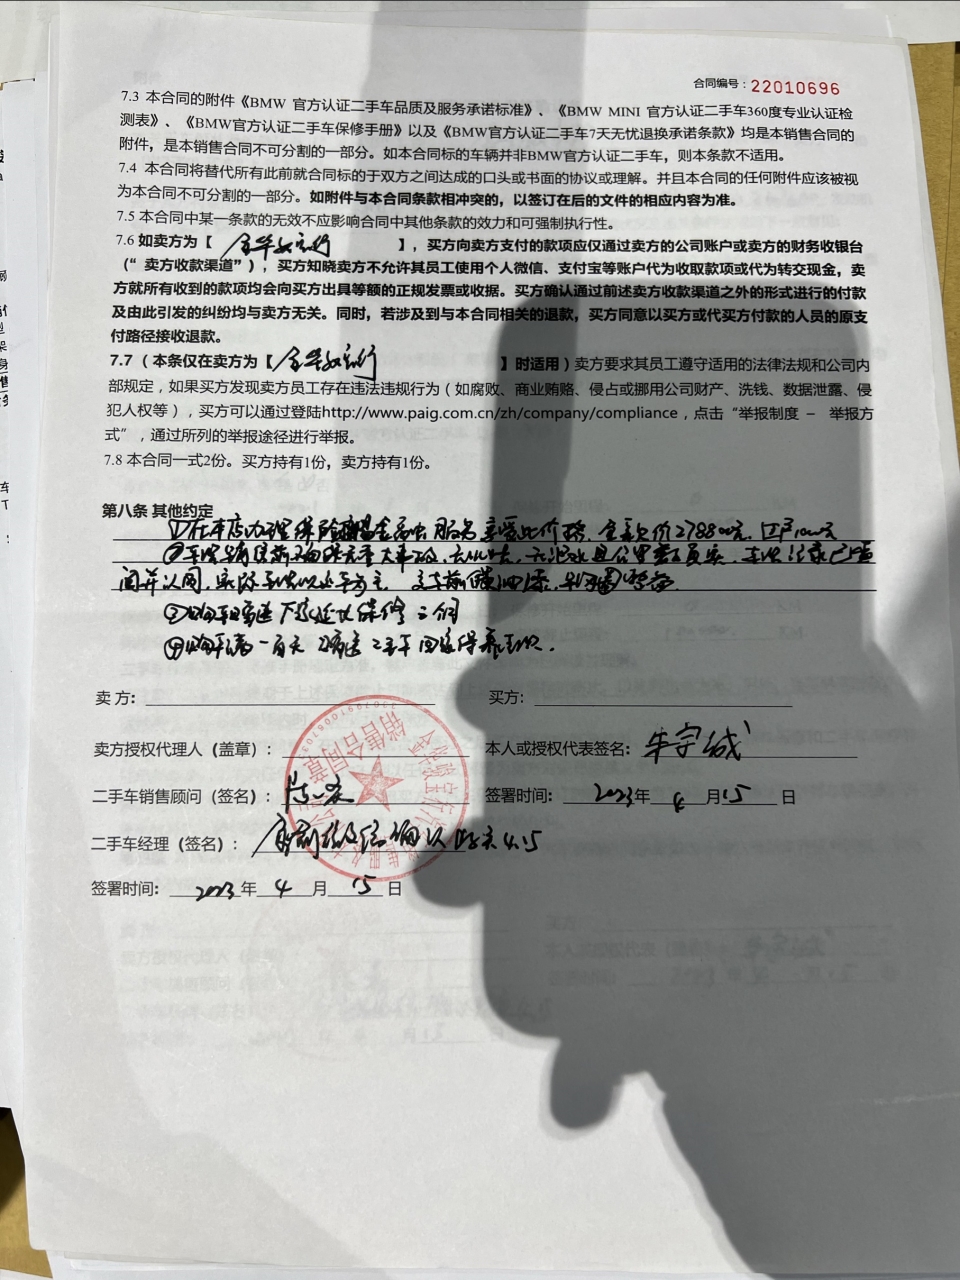 合同编号：22010696
7.3 本合同的附件《BMW 官方认证二手车品质及服务承诺标准》、《BMW MINI 官方认证二手车360度专业认证检
测表》、《BMW官方认证二手车保修手册》以及《BMW官方认证二手车7天无忧退换承诺条款》均是本销售合同的
附件，是本销售合同不可分割的一部分。如本合同标的车辆并非BMW官方认证二手车，则本条款不适用。
7.4 本合同将替代所有此前就合同标的于双方之间达成的口头或书面的协议或理解。并且本合同的任何附件应该被视
为本合同不可分割的一部分。如附件与本合同条款相冲突的，以签订在后的文件的相应内容为准。
7.5 本合同中某一条款的无效不应影响合同中其他条款的效力和可强制执行性。
7.6 如卖方为【 金华骏宝行 】，买方向卖方支付的款项应仅通过卖方的公司账户或卖方的财务收银台
（“卖方收款渠道”），买方知晓卖方不允许其员工使用个人微信、支付宝等账户代为收取款项或代为转交现金，卖
方就所有收到的款项均会向买方出具等额的正规发票或收据。买方确认通过前述卖方收款渠道之外的形式进行的付款
及由此引发的纠纷均与卖方无关。同时，若涉及到与本合同相关的退款，买方同意以买方或代买方付款的人员的原支
付路径接收退款。
7.7（本条仅在卖方为【 金华骏宝行 】时适用）卖方要求其员工遵守适用的法律法规和公司内
部规定，如果买方发现卖方员工存在违法违规行为（如腐败、商业贿赂、侵占或挪用公司财产、洗钱、数据泄露、侵
犯人权等），买方可以通过登陆http://www.paig.com.cn/zh/company/compliance，点击“举报制度 － 举报方
式”，通过所列的举报途径进行举报。
7.8 本合同一式2份。买方持有1份，卖方持有1份。
第八条 其他约定
①在本店办理保险 服务享受此价格，全款价278800元，过户1000元
②车 无重大事故，无火烧，无泡水 车况记录已查
阅并认同，实际车况以 为主
③购车赠送 延长保修
④购车满一百天 赠送 保养
卖 方： 买方：
卖方授权代理人（盖章）： 本人或授权代表签名：牛宇城
二手车销售顾问（签名）： 签署时间：2023年 4 月15 日
二手车经理（签名）： 4.15
签署时间：2023年 4 月 15 日
销售合同章